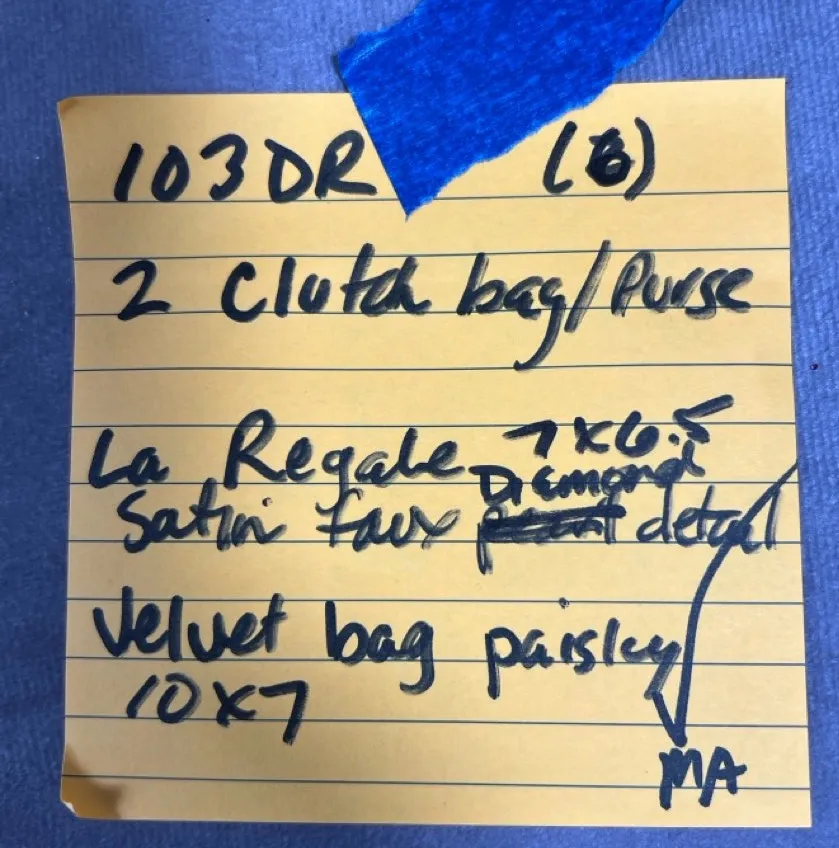 103DR (6)
2 Clutch bag/Purse
La Regale 7x6.5
Satin faux Diamond detail
Velvet bag paisley
10x7
MA